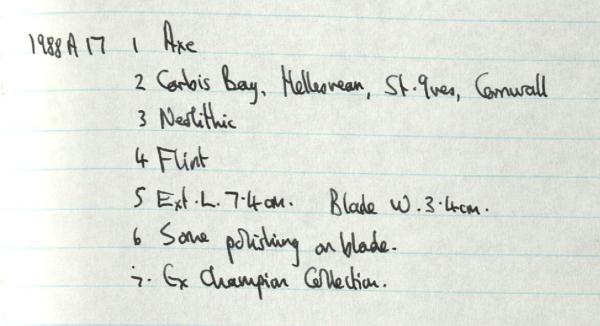 1988 A 17 1 Axe
2 Carbis Bay, Hellesvean, St. Ives, Cornwall
3 Neolithic
4 Flint
5 Ext. L. 7.4cm. Blade W. 3.4cm.
6 Some polishing on blade.
7. Ex Champion Collection.